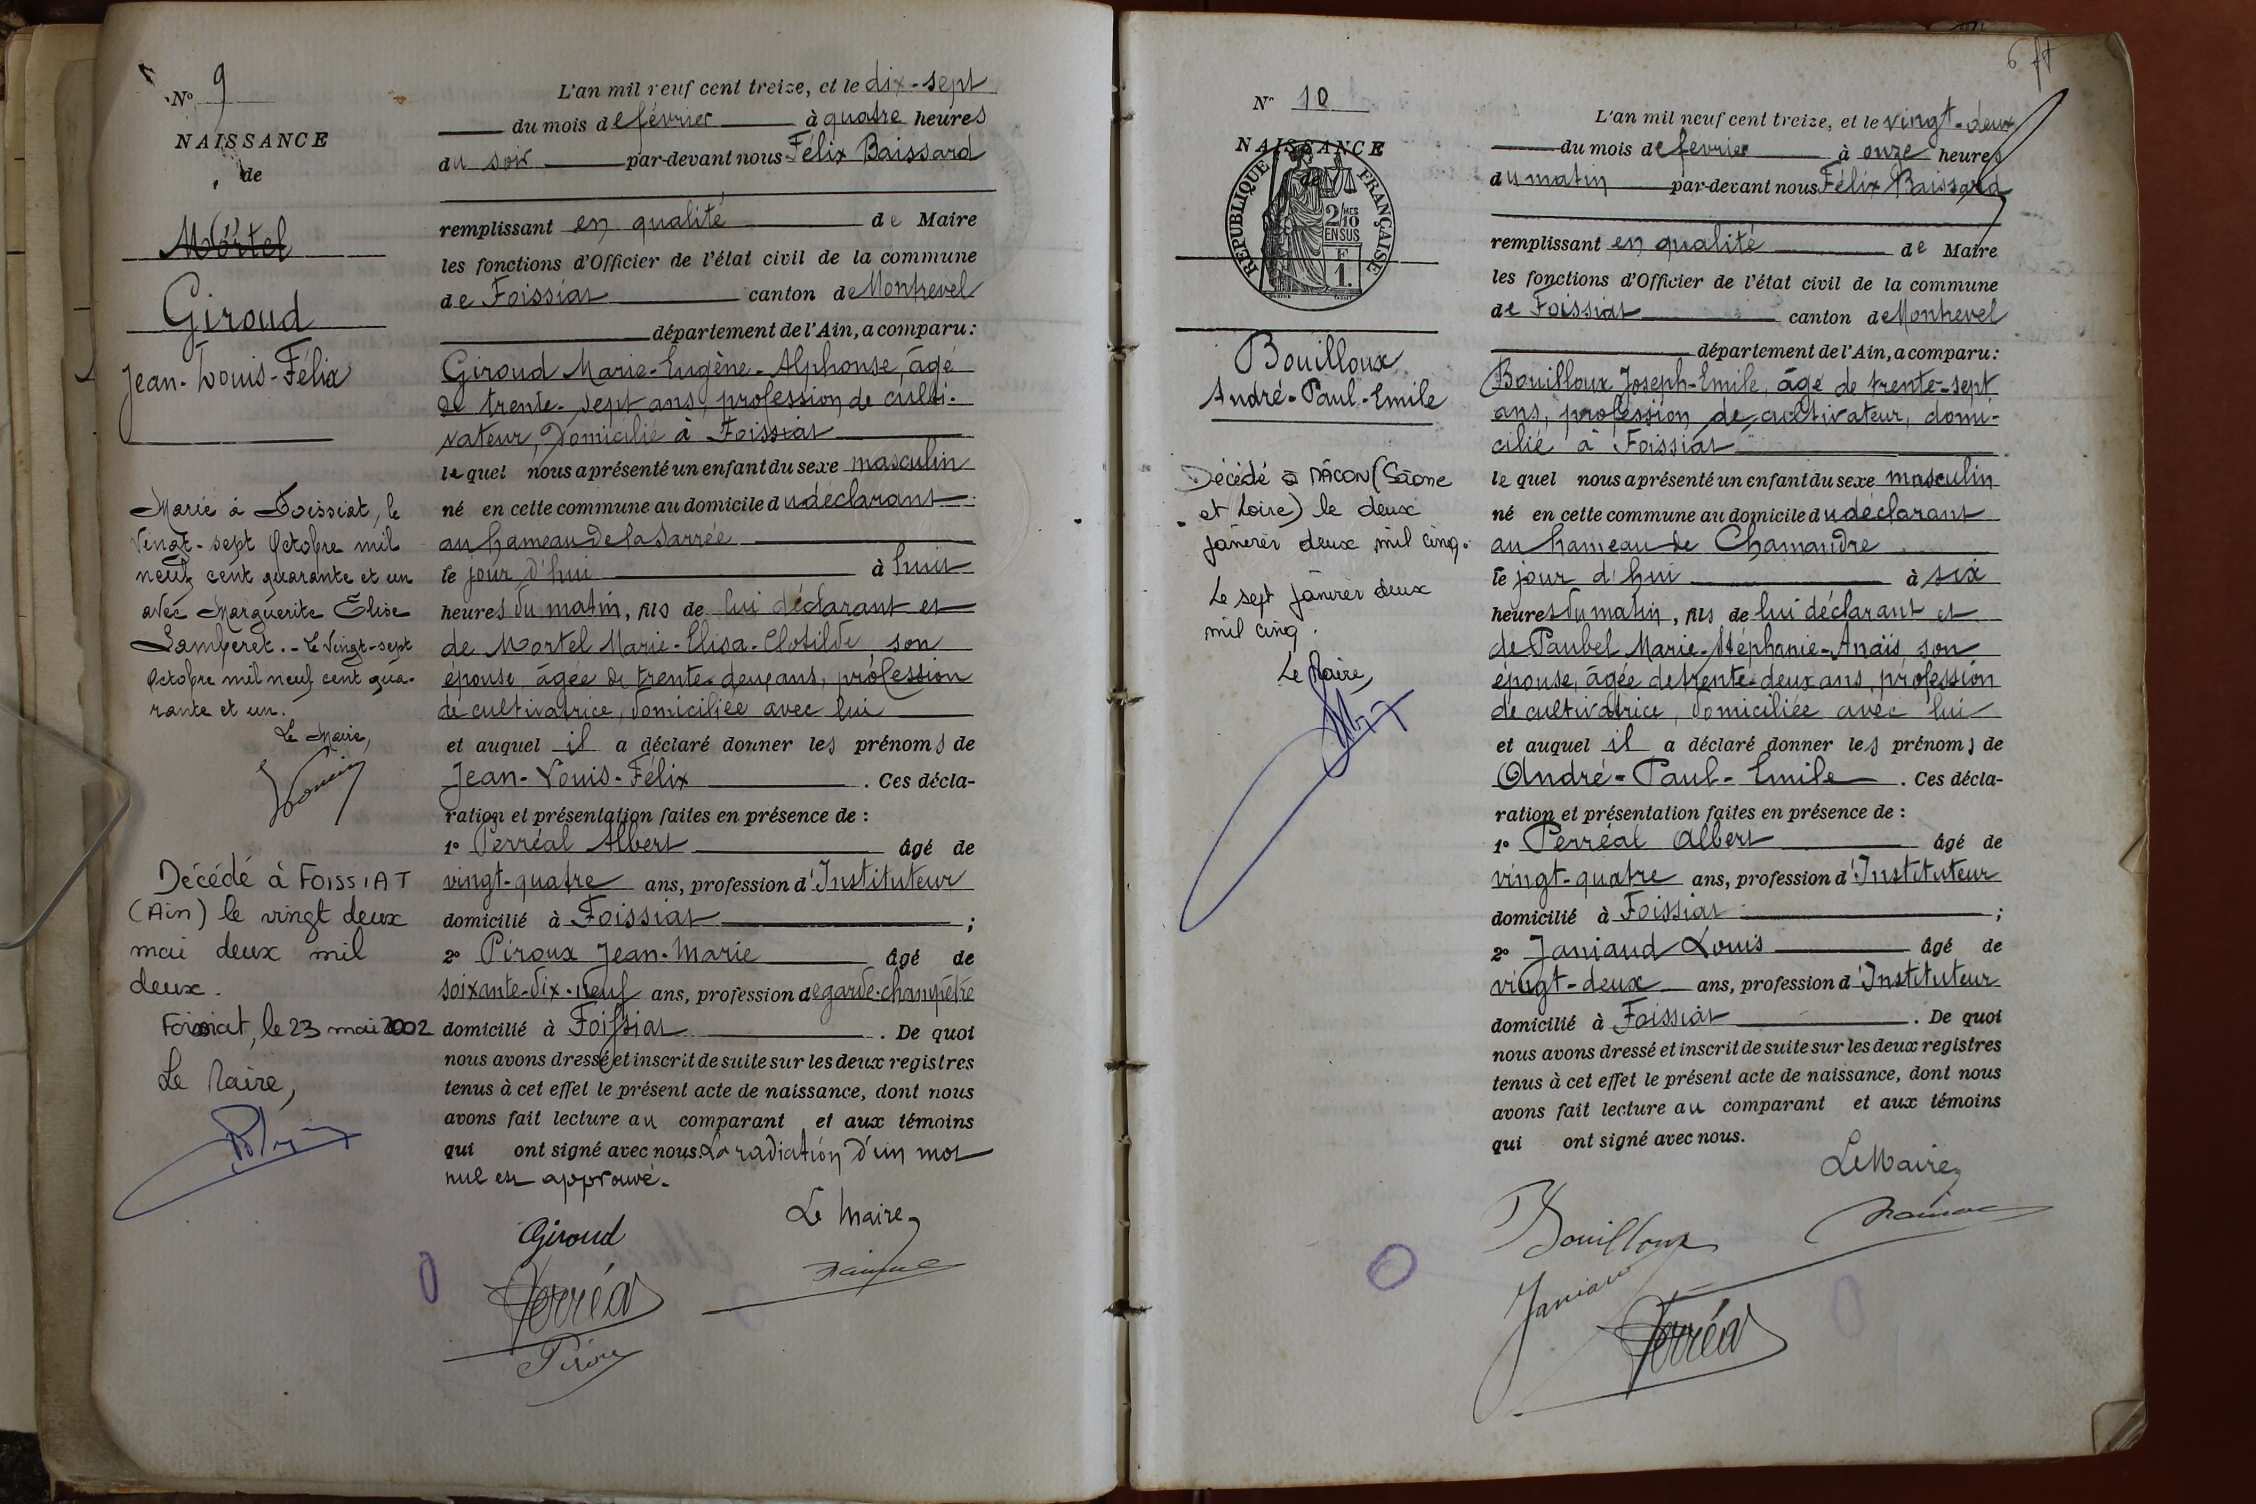 N° 9
NAISSANCE
de
Mortel
Giroud
Jean-Louis-Félix
Marié à Foissiat, le
vingt-sept Octobre mil
neuf cent quarante et un
avec Marguerite Elise
Lamberet. - Le vingt-sept
Octobre mil neuf cent qua-
rante et un.
Le Maire,
Décédé à FOISSIAT
(Ain) le vingt deux
mai deux mil
deux.
Foissiat, le 23 mai 2002
Le Maire,
L'an mil neuf cent treize, et le dix-sept
du mois de février à quatre heures
du soir par-devant nous Félix Baissard
remplissant en qualité de Maire
les fonctions d'Officier de l'état civil de la commune
de Foissiat canton de Montrevel
département de l'Ain, a comparu:
Giroud Marie-Eugène-Alphonse, âgé
de trente-sept ans, profession de culti-
vateur, domicilié à Foissiat
lequel nous a présenté un enfant du sexe masculin
né en cette commune au domicile du déclarant
au hameau de la Sarrée
le jour d'hui à huit
heures du matin, fils de lui déclarant et
de Mortel Marie-Elisa-Clotilde, son
épouse, âgée de trente-deux ans, profession
de cultivatrice, domiciliée avec lui
et auquel il a déclaré donner les prénoms de
Jean-Louis-Félix. Ces décla-
ration et présentation faites en présence de :
1° Perréal Albert âgé de
vingt-quatre ans, profession d'Instituteur
domicilié à Foissiat ;
2° Piroux Jean-Marie âgé de
soixante-dix-neuf ans, profession de garde-champêtre
domicilié à Foissiat. De quoi
nous avons dressé et inscrit de suite sur les deux registres
tenus à cet effet le présent acte de naissance, dont nous
avons fait lecture au comparant et aux témoins
qui ont signé avec nous. La radiation d'un mot
nul est approuvé.
Le Maire,
Giroud
Perréal
Piroux
6
N° 10
NAISSANCE
de
RÉPUBLIQUE FRANÇAISE
2/10 MES
EN SUS
F
1.
Bouilloux
André-Paul-Emile
Décédé à MÂCON (Saône
et Loire) le deux
janvier deux mil cinq.
Le sept janvier deux
mil cinq.
Le Maire,
L'an mil neuf cent treize, et le vingt-deux
du mois de février à onze heures
du matin par-devant nous Félix Baissard
remplissant en qualité de Maire
les fonctions d'Officier de l'état civil de la commune
de Foissiat canton de Montrevel
département de l'Ain, a comparu:
Bouilloux Joseph-Emile, âgé de trente-sept
ans, profession de cultivateur, domi-
cilié à Foissiat
lequel nous a présenté un enfant du sexe masculin
né en cette commune au domicile du déclarant
au hameau de Chamandre
le jour d'hui à six
heures du matin, fils de lui déclarant et
de Paubel Marie-Stéphanie-Anaïs, son
épouse, âgée de trente-deux ans, profession
de cultivatrice, domiciliée avec lui
et auquel il a déclaré donner les prénoms de
André-Paul-Emile. Ces décla-
ration et présentation faites en présence de :
1° Perréal Albert âgé de
vingt-quatre ans, profession d'Instituteur
domicilié à Foissiat ;
2° Janiaud Louis âgé de
vingt-deux ans, profession d'Instituteur
domicilié à Foissiat. De quoi
nous avons dressé et inscrit de suite sur les deux registres
tenus à cet effet le présent acte de naissance, dont nous
avons fait lecture au comparant et aux témoins
qui ont signé avec nous.
Le Maire,
Bouilloux
Janiaud
Perréal